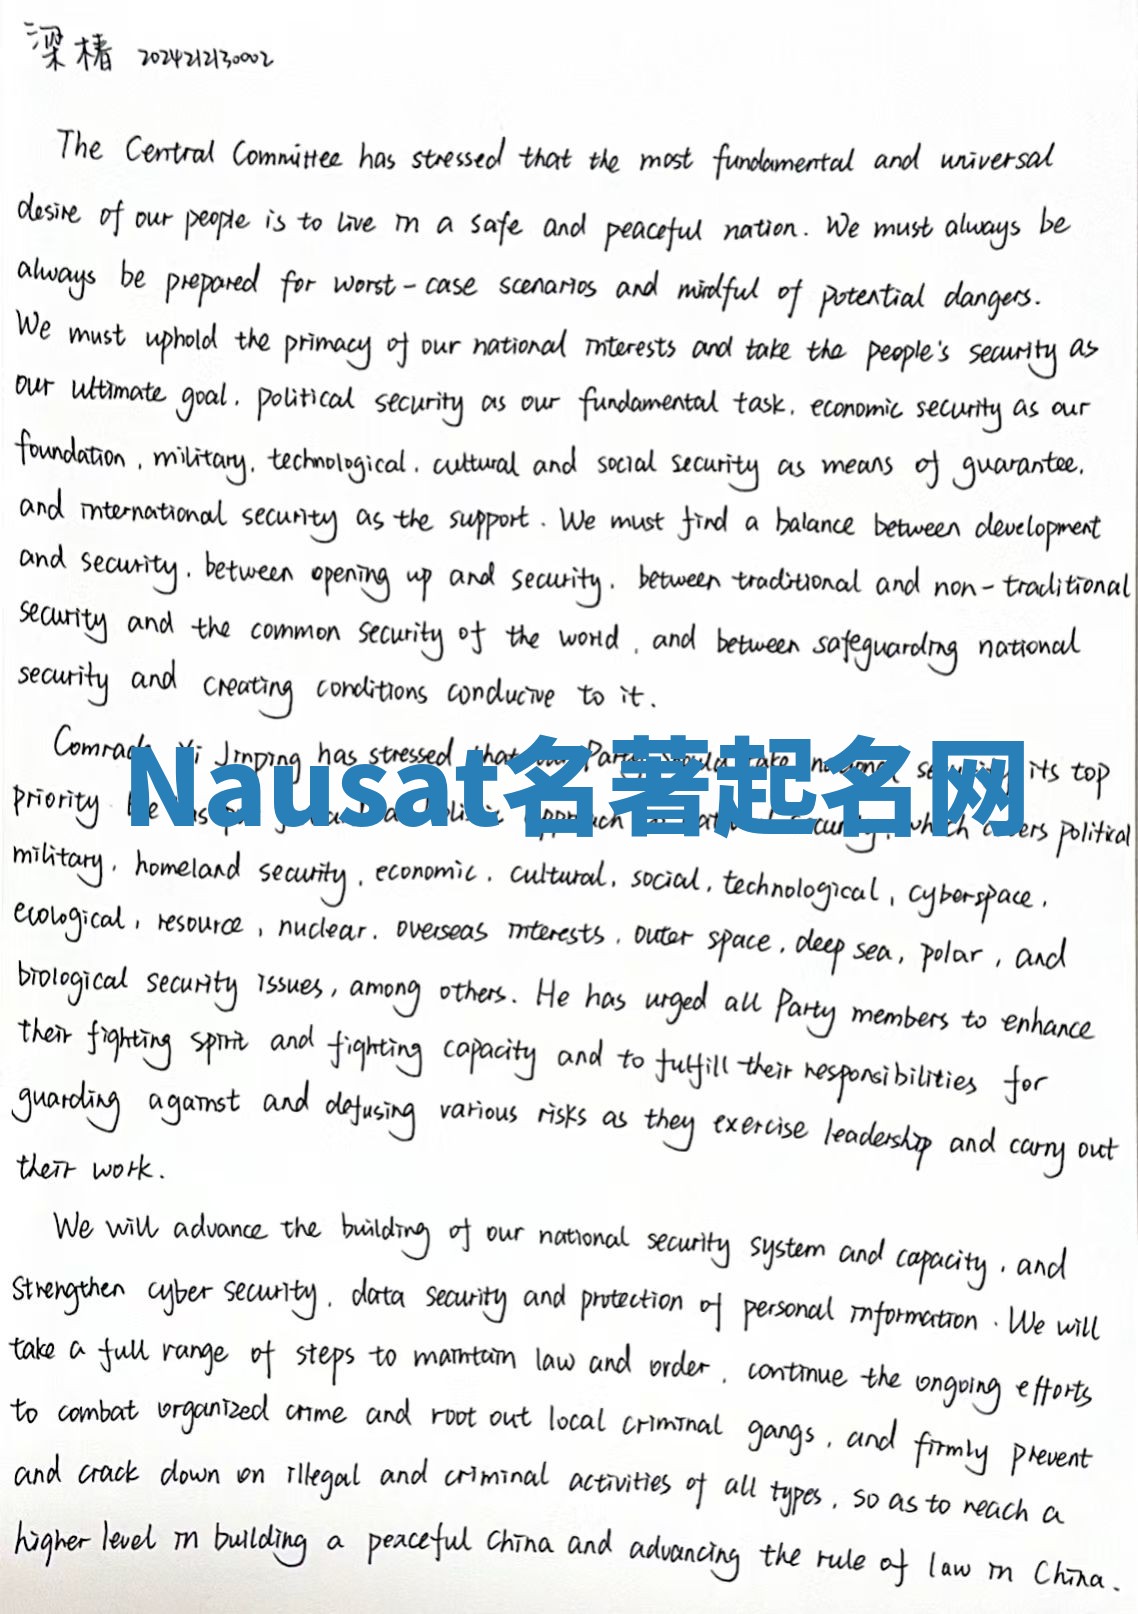 梁椿 2024212130002
The Central Committee has stressed that the most fundamental and universal
desire of our people is to live in a safe and peaceful nation. We must always be
always be prepared for worst-case scenarios and mindful of potential dangers.
We must uphold the primacy of our national interests and take the people's security as
our ultimate goal, political security as our fundamental task, economic security as our
foundation, military, technological, cultural and social security as means of guarantee,
and international security as the support. We must find a balance between development
and security, between opening up and security, between traditional and non-traditional
security and the common security of the world, and between safeguarding national
security and creating conditions conducive to it.
Comrade Xi Jinping has stressed that Party take its top
priority which covers political
Nausat名著起名网
military, homeland security, economic, cultural, social, technological, cyberspace,
ecological, resource, nuclear, overseas interests, outer space, deep sea, polar, and
biological security issues, among others. He has urged all Party members to enhance
their fighting spirit and fighting capacity and to fulfill their responsibilities for
guarding against and defusing various risks as they exercise leadership and carry out
their work.
We will advance the building of our national security system and capacity, and
strengthen cyber security, data security and protection of personal information. We will
take a full range of steps to maintain law and order, continue the ongoing efforts
to combat organized crime and root out local criminal gangs, and firmly prevent
and crack down on illegal and criminal activities of all types, so as to reach a
higher level in building a peaceful China and advancing the rule of law in China.